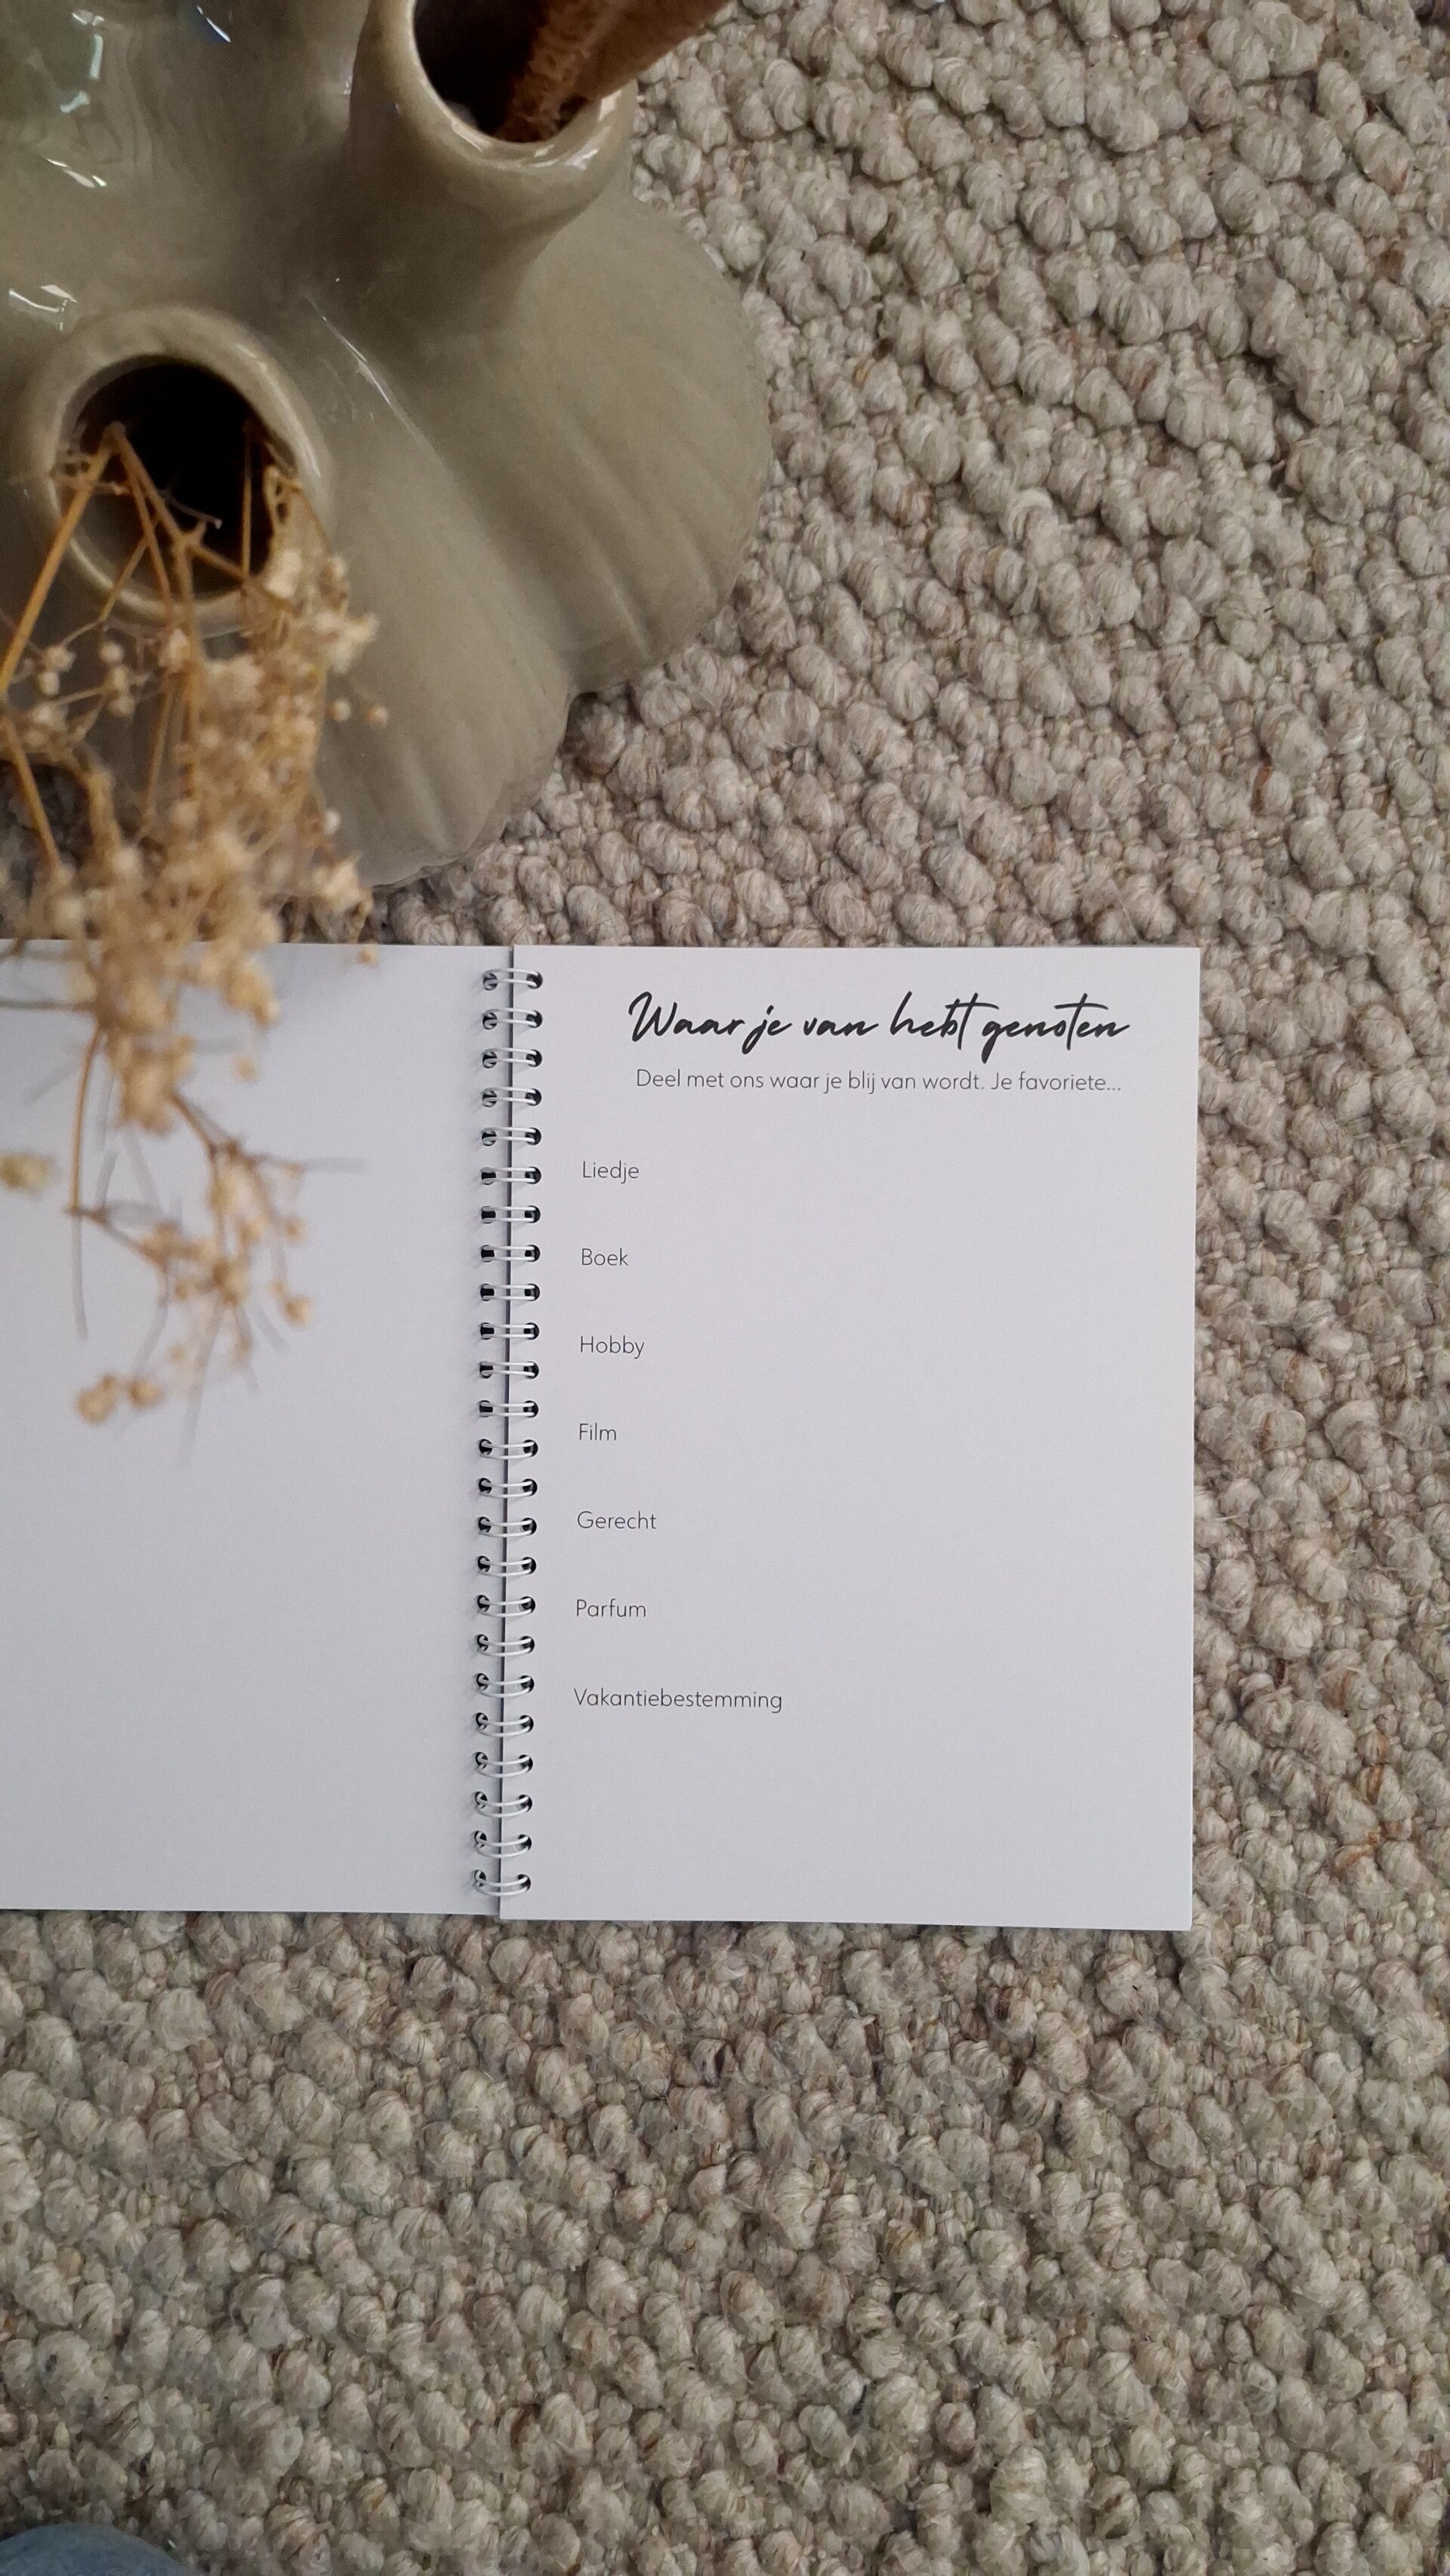 Waar je van hebt genoten
Deel met ons waar je blij van wordt. Je favoriete...
Liedje
Boek
Hobby
Film
Gerecht
Parfum
Vakantiebestemming